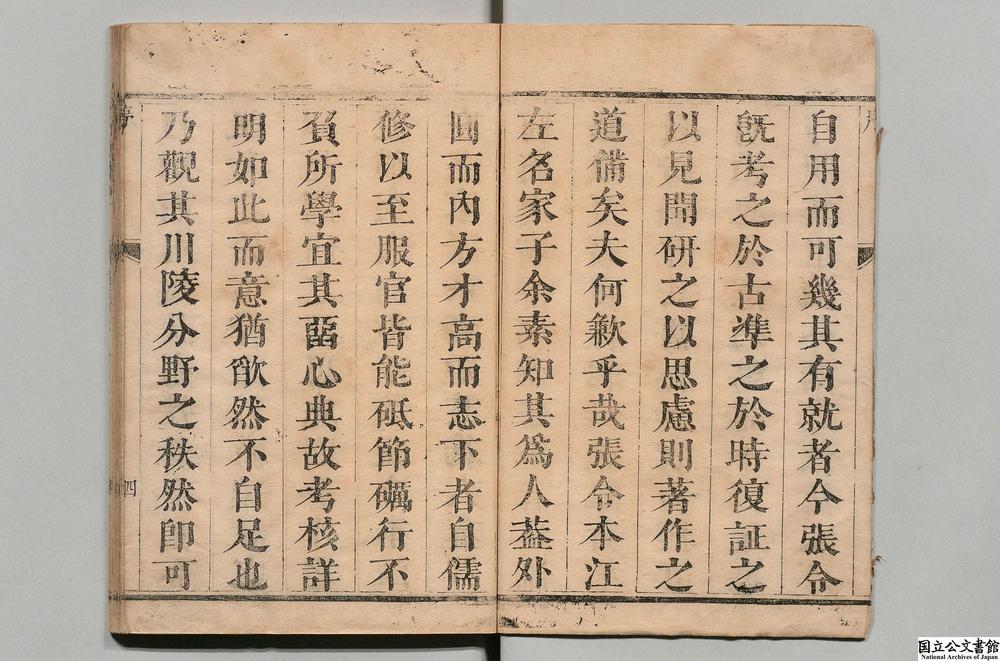 自用而可幾其有就者今張令
旣考之於古準之於時復証之
以見聞研之以思慮則著作之
道備矣夫何歉乎哉張令本江
左名家子余素知其爲人葢外
圓而內方才高而志下者自儒
修以至服官皆能砥節礪行不
負所學宜其留心典故考核詳
明如此而意猶欿然不自足也
乃觀其川陵分野之秩然卽可
序
四
国立公文書館
National Archives of Japan